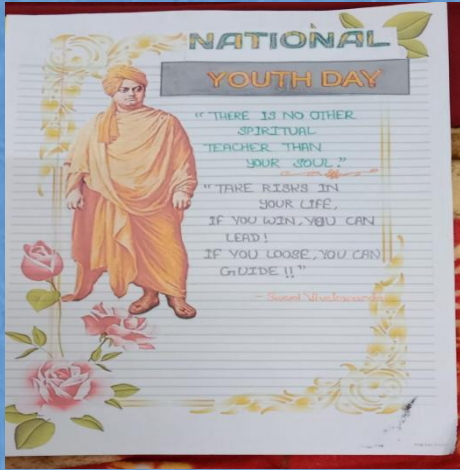 NATIONAL
YOUTH DAY
" THERE IS NO OTHER
SPIRITUAL
TEACHER THAN
YOUR SOUL."
" TAKE RISKS IN
YOUR LIFE,
IF YOU WIN, YOU CAN
LEAD!
IF YOU LOOSE, YOU CAN
GUIDE !! "
- Swami Vivekananda